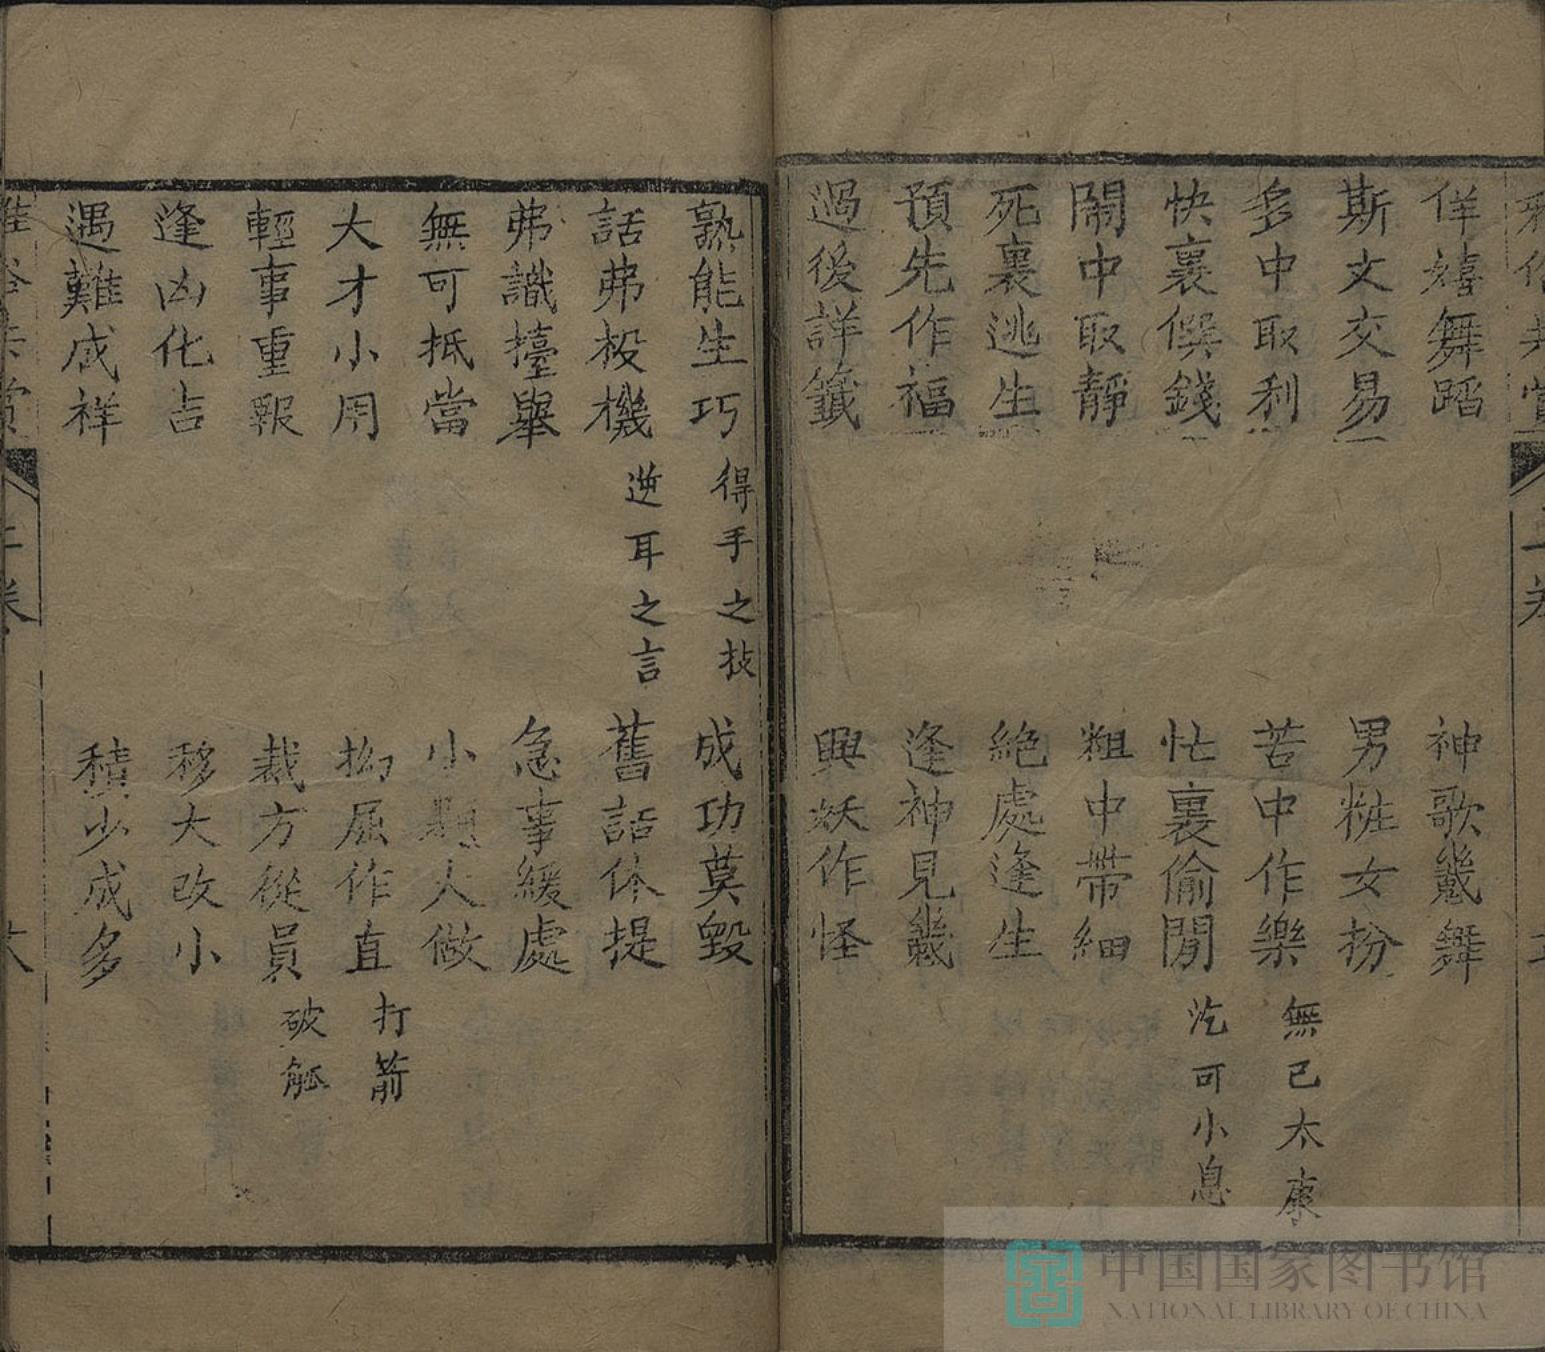 佯嬉舞蹈　神歌戱舞
斯文交易　男粧女扮
多中取利　苦中作樂　無已太康
快裏僎錢　忙裏偷閒　汔可小息
鬧中取靜　粗中帶細
死裏逃生　絶處逢生
預先作福　逢神見戱
過後詳籤　興妖作怪
熟能生巧　得手之技　成功莫毀
話弗投機　逆耳之言　舊話休提
弗識擡舉　急事緩處
無可抵當　小題人做
大才小用　拗屈作直　打箭
輕事重報　裁方從員　破觚
逢凶化吉　移大改小
遇難成祥　積少成多
中国国家图书馆
NATIONAL LIBRARY OF CHINA